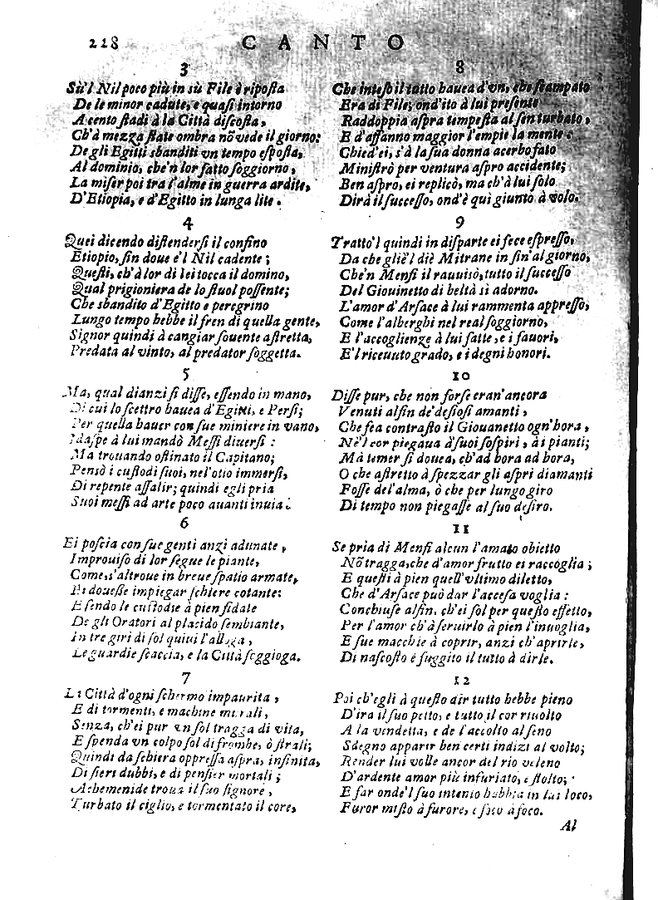 228 CANTO
3
Sù'l Nil poco più in sù File è riposta
De le minor cadute, e quasi intorno
A cento stadi à la Città discosta,
Ch'à mezza state ombra nõ vede il giorno:
De gli Egitti sbanditi vn tempo esposta,
Al dominio, che'n lor fatto soggiorno,
La miser poi tra l'alme in guerra ardite,
D'Etiopia, e d'Egitto in lunga lite.
4
Quei dicendo distendersi il confino
Etiopio, sin doue è'l Nil cadente;
Questi, ch'à lor di lei tocca il domino,
Qual prigioniera de lo stuol possente;
Che sbandito d'Egitto e peregrino
Lungo tempo hebbe il fren di quella gente,
Signor quindi à cangiar souente astretta,
Predata al vinto, al predator soggetta.
5
Ma, qual dianzi si disse, essendo in mano,
Di cui lo scettro hauea d'Egitti, e Persi;
Per quella hauer con sue miniere in vano,
Idaspe à lui mandò Messi diuersi:
Ma trouando ostinato il Capitano;
Pensò i custodi suoi, nel'otio immersi,
Di repente assalir; quindi egli pria
Suoi messi ad arte poco auanti inuia.
6
Ei poscia con sue genti anzi adunate,
Improuiso di lor segue le piante,
Come s'altroue in breue spatio armate,
Ei douesse impiegar schiere cotante:
Essendo le custodie à pien fidate
De gli Oratori al placido sembiante,
In tre giri di sol quiui l'
Le guardie scaccia, e la Città soggioga.
7
La Città d'ogni schermo impaurita,
E di tormenti, e machine murali,
Senza, ch'ei pur vn sol tragga di vita,
E spenda vn colpo sol di frombe, ò strali;
Quindi da schiera oppressa aspra, infinita,
Di fieri dubbi, e di pensier mortali;
Achemenide troua il suo signore,
Turbato il ciglio, e tormentato il core,
8
Che inteso il tutto hauea d'vn, che scampato
Era di File, ond'ito à lui presente
Raddoppia aspra tempesta al sen turbato,
E d'affanno maggior l'empie la mente:
Chied'ei, s'à la sua donna acerbo fato
Ministrò per ventura aspro accidente;
Ben aspro, ei replicò, ma ch'à lui solo
Dirà il successo, ond'è qui giunto à volo.
9
Tratto'l quindi in disparte ei fece espresso,
Da che gliè'l diè Mitrane in fin'al giorno,
Che'n Menfi il rauuisò, tutto il successo
Del Giouinetto di beltà sì adorno.
L'amor d'Arsace à lui rammenta appresso,
Come l'alberghi nel real soggiorno,
E l'accoglienze à lui fatte, e i fauori,
E'l riceuuto grado, e i degni honori.
10
Disse pur, che non forse eran'ancora
Venuti alfin de'desiosi amanti,
Che fea contrasto il Giouanetto ogn'hora,
Nè'l cor piegaua à'suoi sospiri, à i pianti;
Mà temer si douea, ch'ad hora ad hora,
O che astretto à spezzar gli aspri diamanti
Fosse del'alma, ò che per lungo giro
Di tempo non piegasse al suo desiro.
11
Se pria di Menfi alcun l'amato obietto
Nõ tragga, che d'amor frutto ei raccoglia;
E questi à pien quell'vltimo diletto,
Che d'Arsace può dar l'accesa voglia:
Conchiuse alfin, ch'ei sol per questo effetto,
Per l'amor ch'à seruirlo à pien l'inuoglia,
E sue macchie à coprir, anzi ch'aprirle,
Di nascosto è fuggito il tutto à dirle.
12
Poi ch'egli à questo dir tutto hebbe pieno
D'ira il suo petto, e tutto il cor riuolto
A la vendetta, e de l'accolto al seno
Sdegno apparir ben certi indizi al volto;
Render lui volle ancor del rio veleno
D'ardente amor più infuriato, e stolto;
E far onde'l suo intento habbia in lui loco,
Furor misto à furore, e foco à foco.
Al